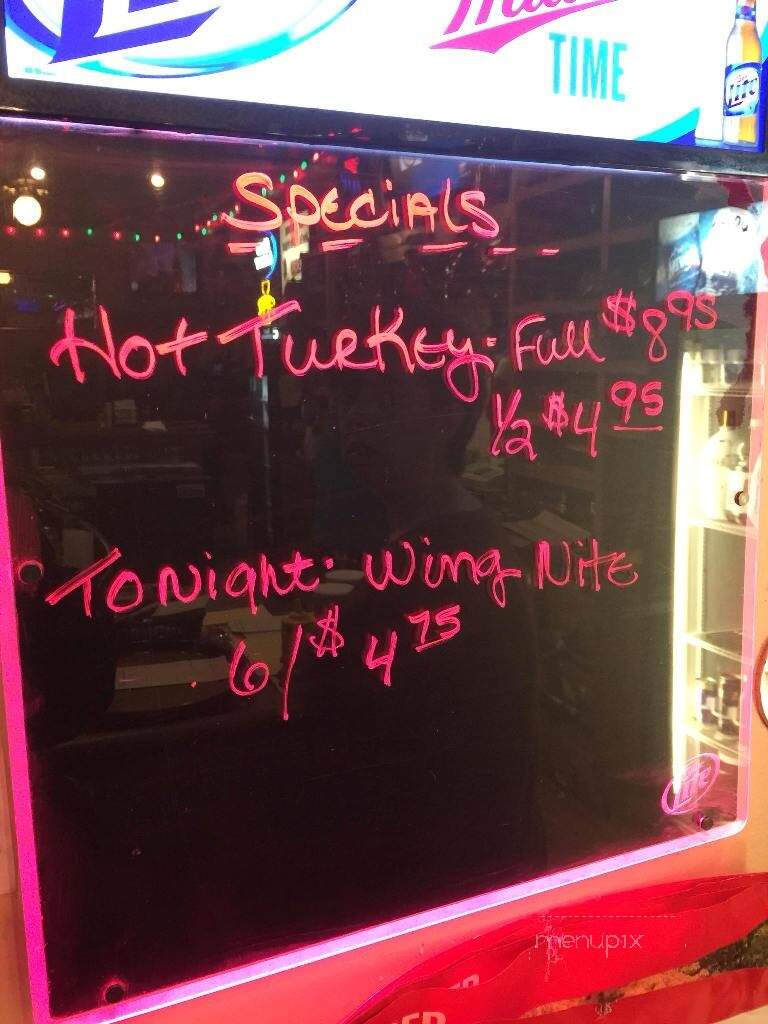 TIME
Lite
Specials
Hot Turkey: Full $8 95
1/2 $4 95
Tonight: Wing Nite
6/ $4 75
Lite
menupix